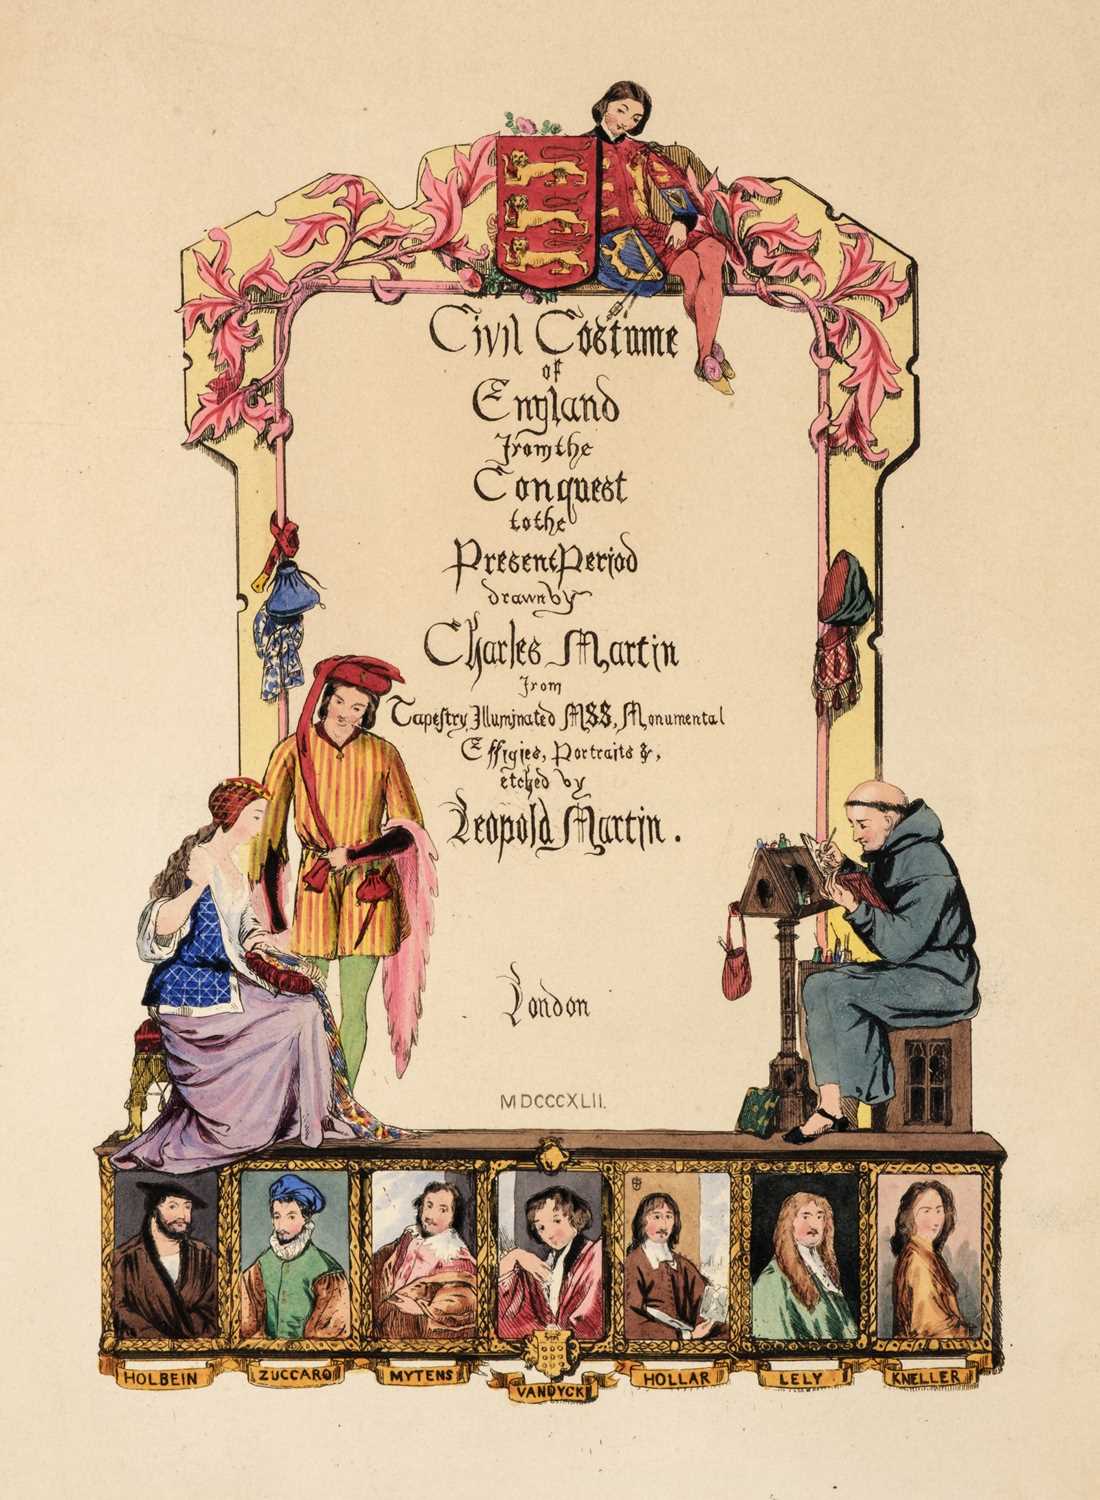 Civil Costume
of
England
From the
Conquest
to the
Present Period
drawn by
Charles Martin
From
Tapestry, Illuminated MSS, Monumental
Effigies, Portraits &,
etched by
Leopold Martin.
London
MDCCCXLII.
HOLBEIN
ZUCCARO
MYTENS
VANDYCK
HOLLAR
LELY
KNELLER